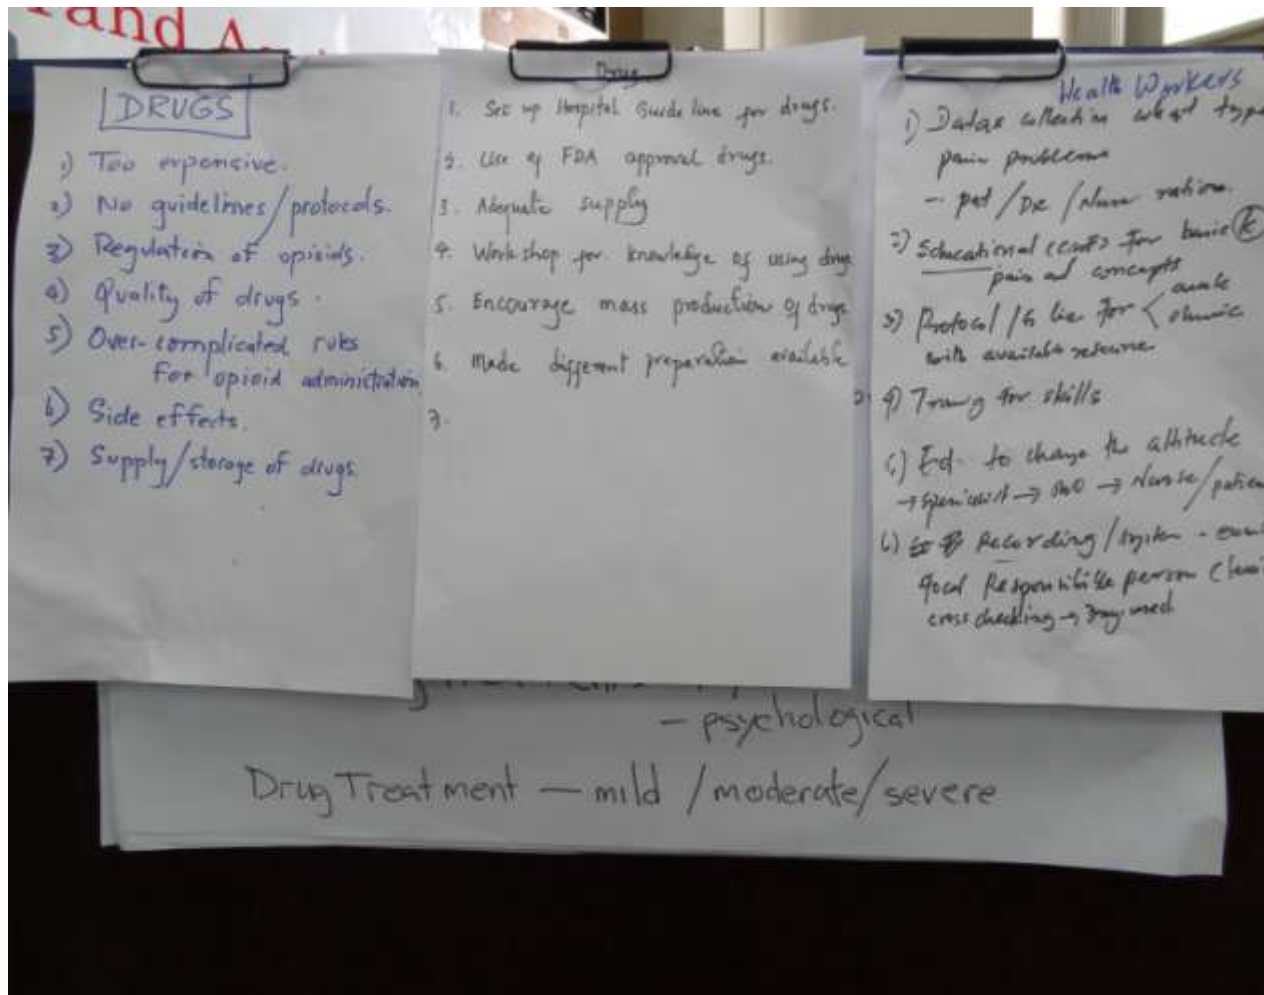 and
DRUGS
1) Too expensive.
2) No guidelines/protocols.
3) Regulation of opioids.
4) Quality of drugs.
5) Over-complicated rules
for opioid administration
6) Side effects.
7) Supply/storage of drugs.
Drug
1. Set up Hospital Guide line for drugs.
2. Use of FDA approval drugs.
3. Adequate supply
4. Workshop for knowledge of using drug
5. Encourage mass production of drugs
6. Made different preparation available
7.
Health Workers
1) Datas collection what type
pain problems
- pat / Dr / Nurse ration.
2) Educational for basic K
pain concepts
3) Protocol / G line for < acute
chronic
with available resource
4) for skills
5) Ed- to change the attitude
→ specialist → → Nurse/patien
6) Recording/system -
focal Responsible person
cross checking →  used
- psychological
Drug Treatment - mild / moderate/severe